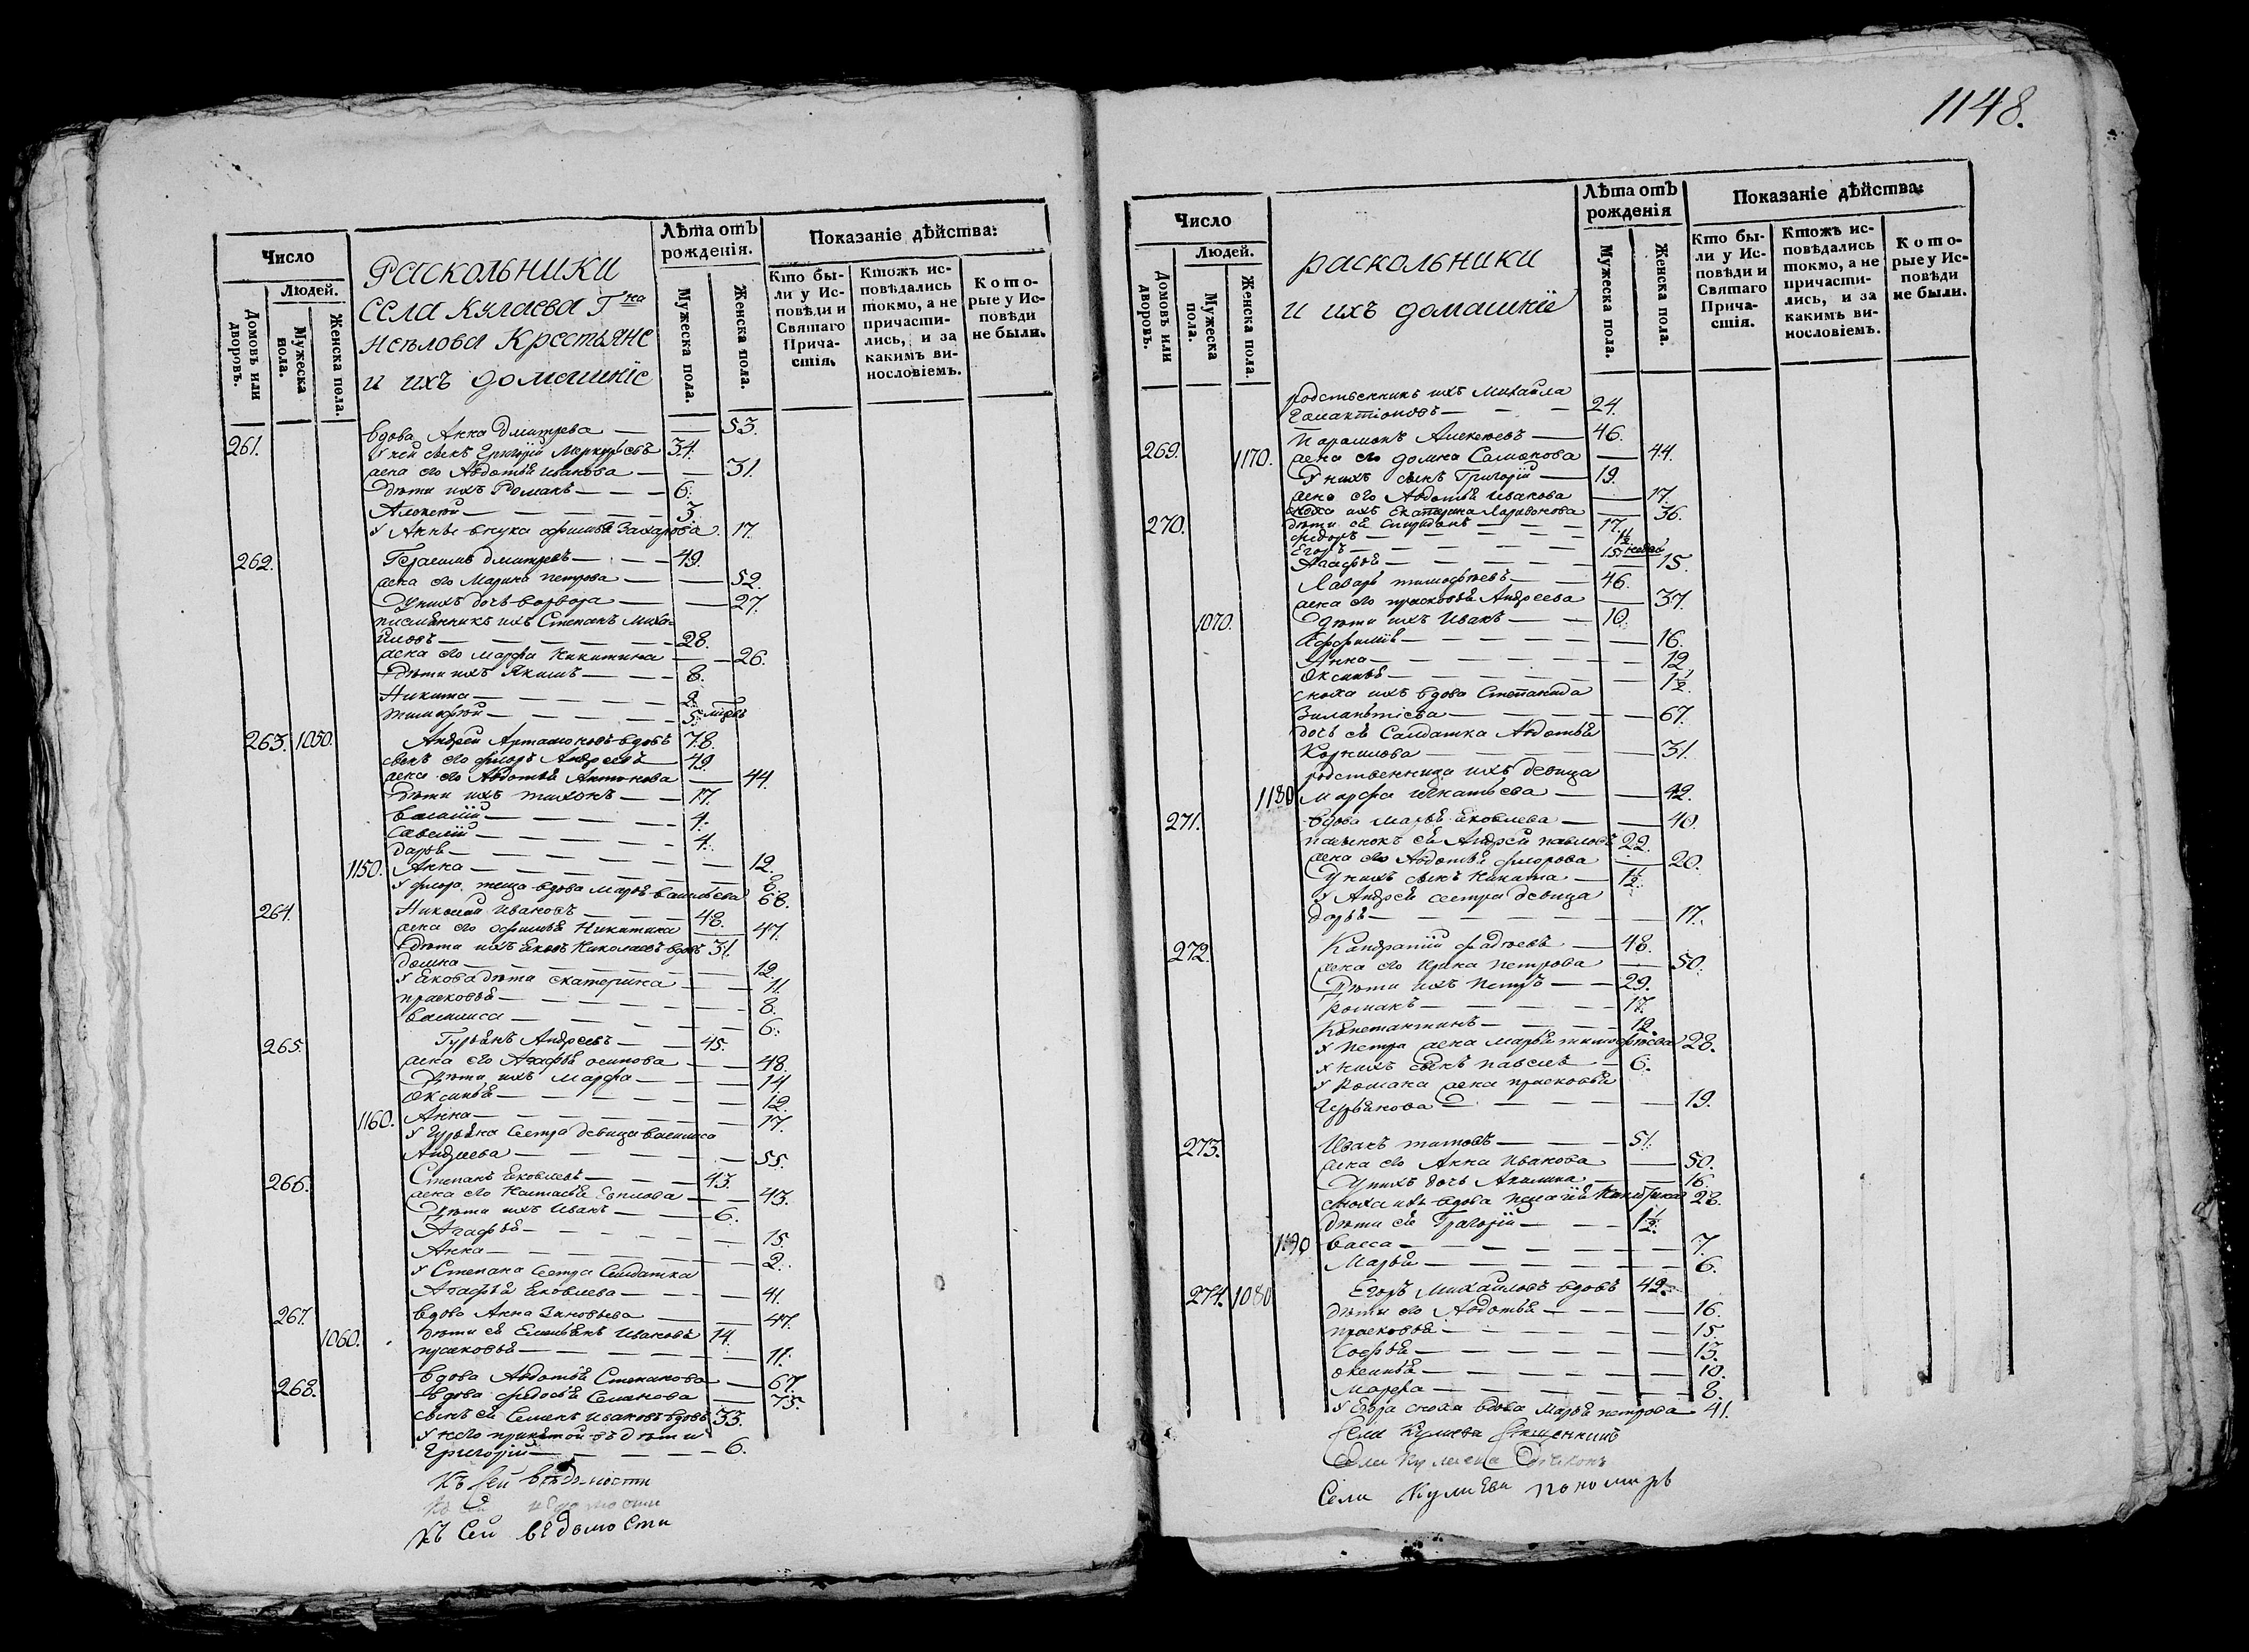 1148.
Число
Людей.
Домовъ или дворовъ.
Мужеска пола.
Женска пола.
Раскольники
села Кулаева Гна
Неѣлова Крестьяне
и ихъ домашніе
Лѣта отъ рожденія.
Мужеска пола.
Женска пола.
Показаніе дѣйства:
Кто бы-
ли у Ис-
повѣди и
Святаго
Прича-
стія.
Ктожъ ис-
повѣдались
токмо, а не
причасти-
лись, и за
какимъ ви-
нословіемъ.
Кото-
рые у Ис-
повѣди
не были.
261. вдова Анна Дмитрева — 53.
У ней сынъ Григорій Меркурьевъ 34.
жена его Авдотья Иванова — 31.
Дѣти ихъ Романъ — 6.
Алексѣй — 3.
У Анны внука Офимья Захарова. 17.
262. Герасимъ Дмитревъ — 49.
жена его Марина Петрова — 52.
У нихъ дочь Варвара — 27.
племянникъ ихъ Степанъ Миха-
йловъ — 28.
жена его Марфа Никитина — 26.
Дѣти ихъ Якимъ — 8.
Никита — 2.
Тимофѣй — 5 мѣсяц
263. 1050. Андрей Артамоновъ вдовъ 78.
сынъ его Флоръ Андреевъ 49.
жена его Авдотья Антонова — 44.
Дѣти ихъ Тихонъ — 17.
Василій — 4.
Савелій — 4.
Дарья — 12.
1150. Анна — 8.
У Флора теща вдова Марья Васильева 68.
264. Николай Ивановъ — 48.
жена его Офимья Никитина 47.
Дѣти ихъ Яковъ Николаевъ вдовъ 31.
Домна — 12.
У Якова дѣти Екатерина — 11.
Прасковья — 8.
Василиса — 6.
265. Гурьянъ Андреевъ — 45.
жена его Агафья Осипова — 48.
Дѣти ихъ Марфа — 14.
Оксинья — 12.
1160. Анна — 17.
У Гурьяна сестра девица Василиса
Андреева — 55.
266. Степанъ Яковлевъ — 43.
жена его Настасья Евплова — 43.
Дѣти ихъ Иванъ — 6.
Агафья — 15.
Анна — 2.
У Степана сестра Солдатка
Агафья Яковлева — 41.
267. вдова Анна Зиновьева — 47.
1060. Дѣти ея Емельянъ Ивановъ 14.
Прасковья — 11.
вдова Авдотья Степанова — 67.
268. вдова Федосья Семенова — 75.
сынъ ея Семенъ Ивановъ вдовъ 33.
У него прижитой въ дѣти
Григорій — 6.
Къ сей вѣдомости
Къ сей вѣдомости
Къ сей вѣдомости
Число
Людей.
Домовъ или дворовъ.
Мужеска пола.
Женска пола.
раскольники
и ихъ домашніе
Лѣта отъ рожденія
Мужеска пола.
Женска пола.
Показаніе дѣйства:
Кто бы-
ли у Ис-
повѣди и
Святаго
Прича-
стія.
Ктожъ ис-
повѣдались
токмо, а не
причасти-
лись, и за
какимъ ви-
нословіемъ.
Кото-
рые у Ис-
повѣди
не были.
родственникъ ихъ Михайла
Галактіоновъ — 24.
269. Парамонъ Алексеевъ — 46.
1170. жена его Домна Самонова — 44.
У нихъ сынъ Григорій — 19.
жена его Авдотья Иванова — 17.
270. сноха ихъ Екатерина Ларивонова — 36.
дѣти ея Спиридонъ — 17.
Федоръ — 1½
Егоръ — 15 недѣл
Агафья — 15.
Лаварь Тимофеевъ — 46.
жена его Прасковья Андреева — 37.
1070. Дѣти ихъ Иванъ — 10.
Афросинья — 16.
Анна — 12.
Оксинья — 1½.
сноха ихъ вдова Степанида
— 67.
дочь ея Салдатка Авдотья
Корнилова — 31.
родственница ихъ девица
1180 Марфа Игнатьева — 42.
271. вдова Марья Яковлева — 40.
пасынокъ ея Андрей Павловъ 22.
жена его Авдотья Флорова — 20.
У нихъ сынъ Никита — 1½.
У Андрея сестра девица
Дарья — 17.
272. Кандратій Фадеевъ — 48.
жена его Ирина Петрова — 50.
Дѣти ихъ Петръ — 29.
Романъ — 17.
Констянтинъ — 12.
У Петра жена Марья Тимофеева 28.
У нихъ сынъ Павелъ — 6.
У Романа жена Прасковья
Гурьянова — 19.
273. Иванъ Титовъ — 51.
жена его Анна Иванова — 50.
У нихъ дочь Акилина — 16.
сноха ихъ вдова Пелагія 28.
дѣти ея Григорій — 1½.
1190 Васса — 7.
Марья — 6.
274. 1080 Егоръ Михайловъ вдовъ 42.
дѣти его Авдотья — 16.
Прасковья — 15.
Софья — 13.
Оксинья — 10.
Марфа — 8.
У Егора сноха вдова Марья Петрова 41.
Села Кулаева Священникъ
Села Кулаева Дьяконъ
Села Кулаева пономарь